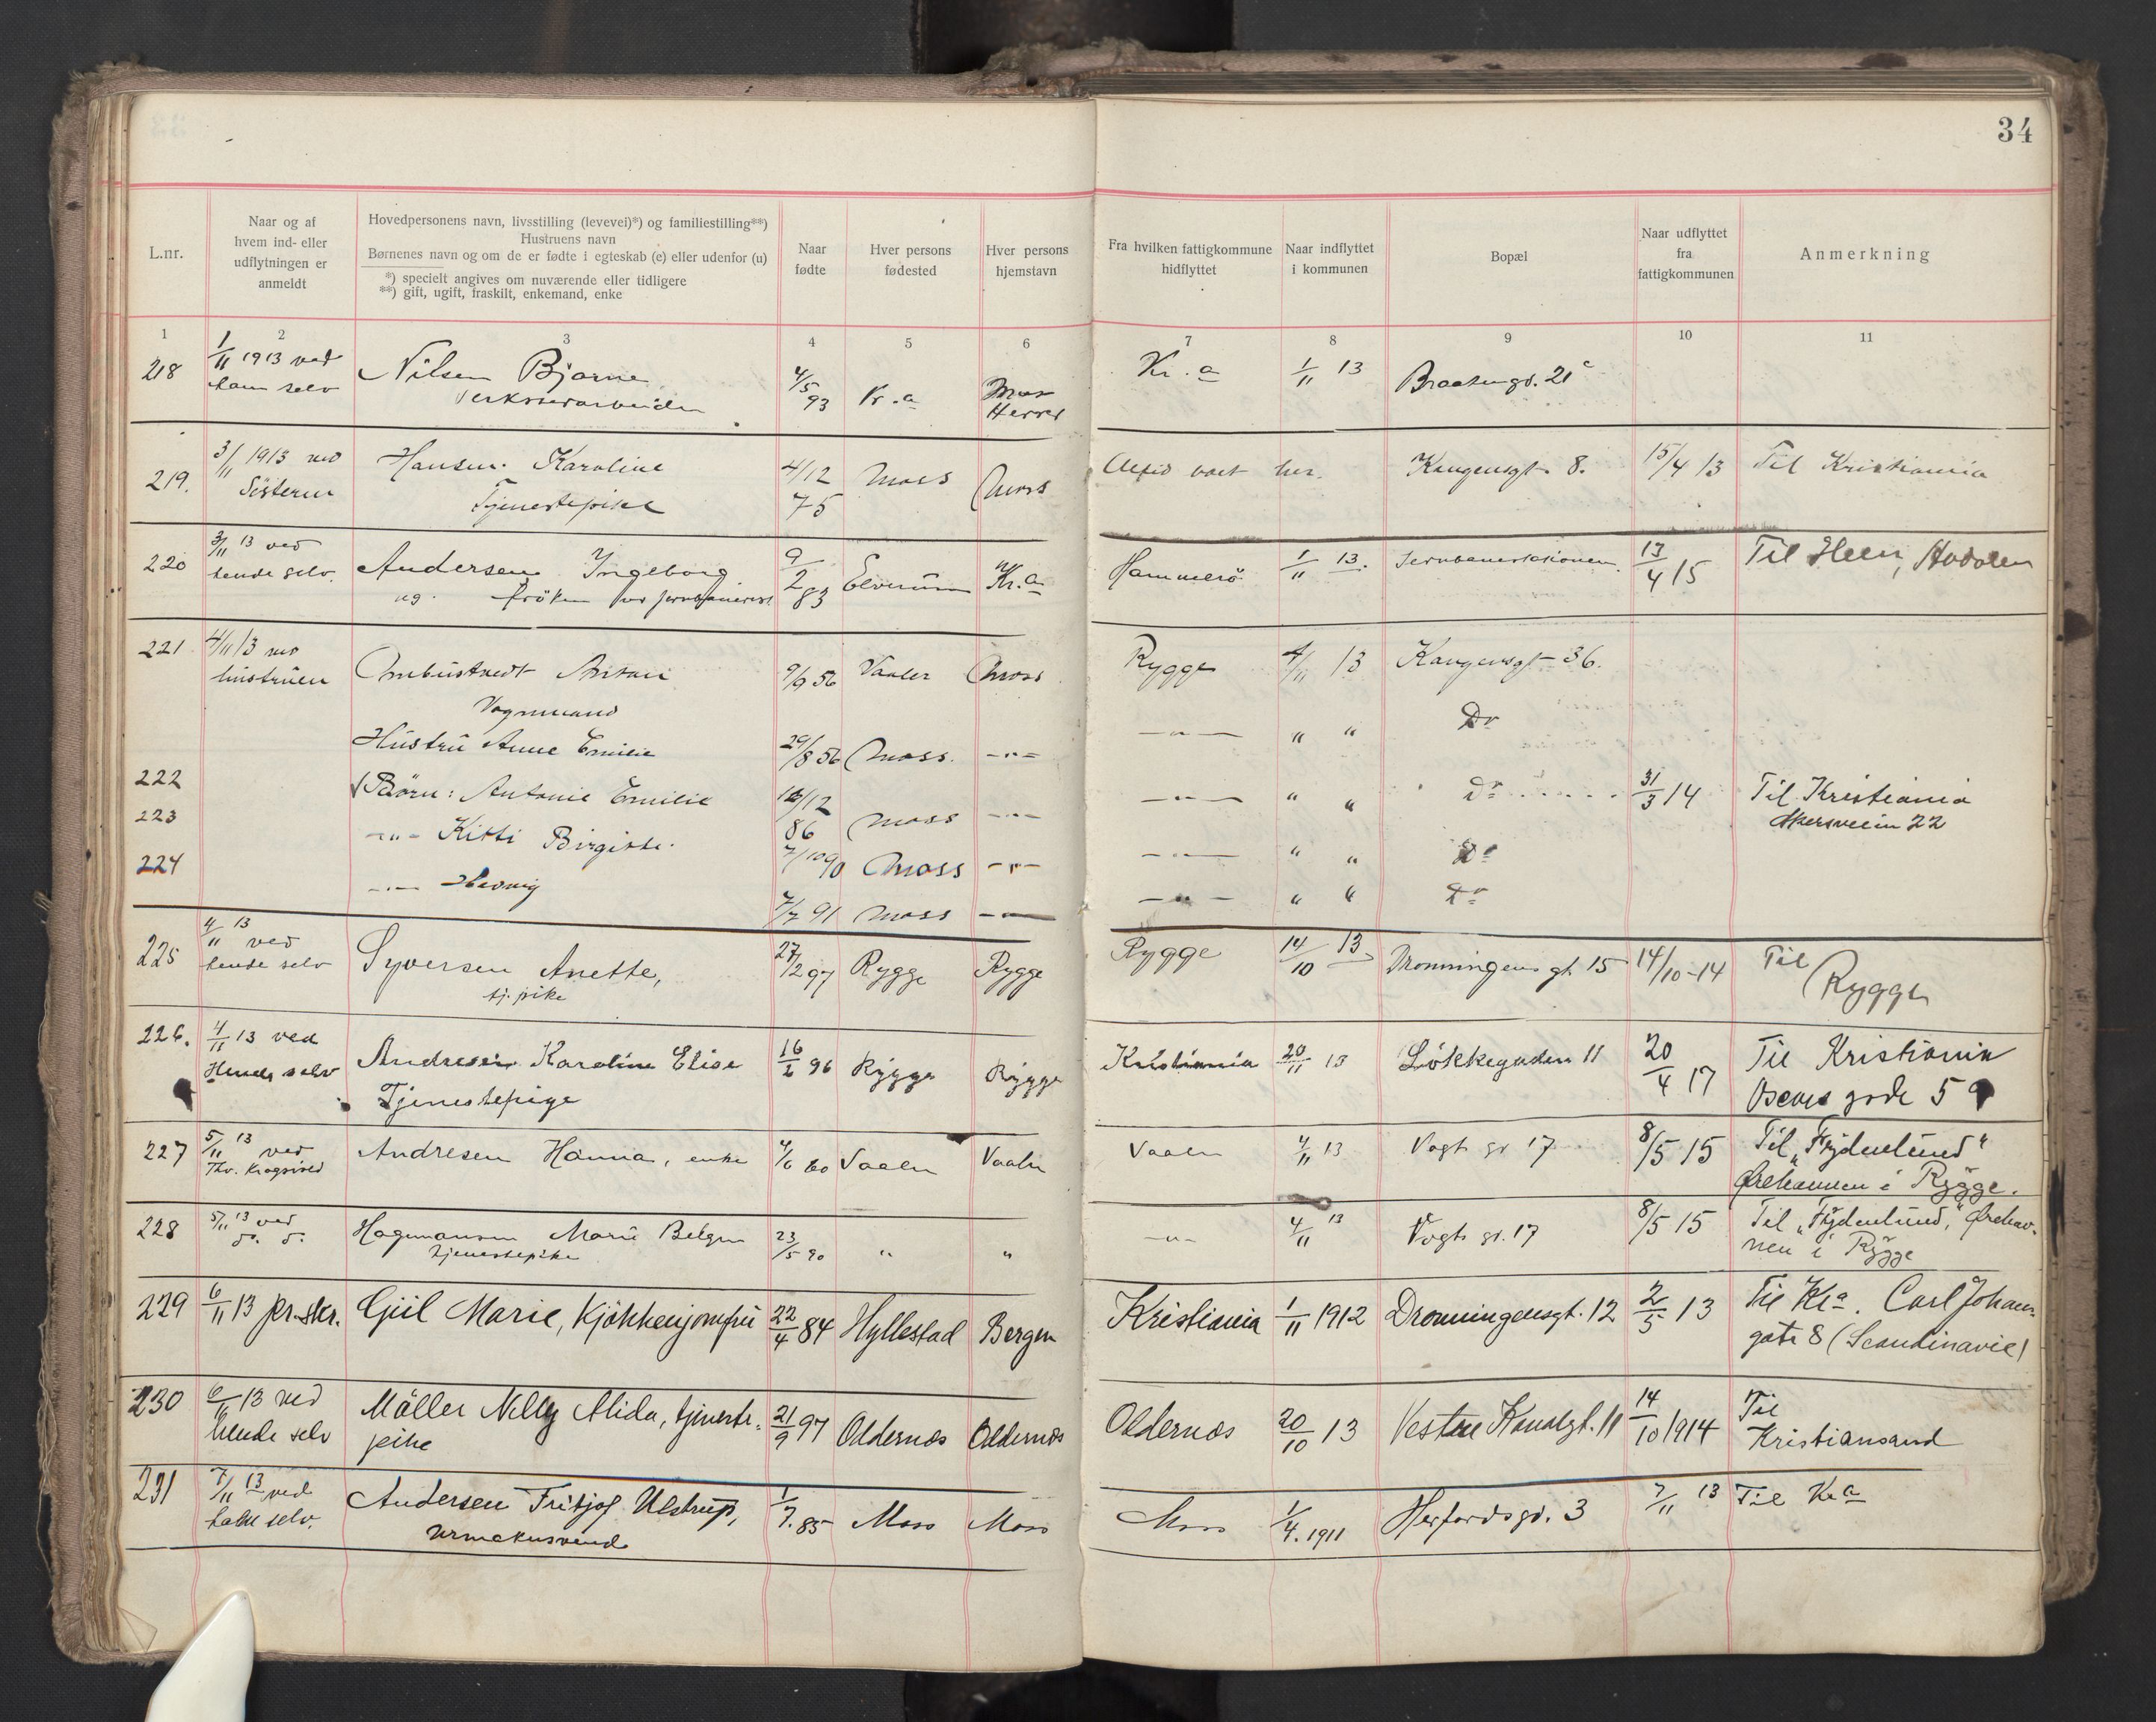 34
L.nr.
Naar og af
hvem ind- eller
udflytningen er
anmeldt
Hovedpersonens navn, livsstilling (levevei)*) og familiestilling**)
Hustruens navn
Børnenes navn og om de er fødte i egteskab (e) eller udenfor (u)
*) specielt angives om nuværende eller tidligere
**) gift, ugift, fraskilt, enkemand, enke
Naar
fødte
Hver persons
fødested
Hver persons
hjemstavn
Fra hvilken fattigkommune
hidflyttet
Naar indflyttet
i kommunen
Bopæl
Naar udflyttet
fra
fattigkommunen
Anmerkning
1 2 3 4 5 6 7 8 9 10 11
218 1/11 1913 ved Nilsen Bjarne 4/5 93 Kr.a Kr.a 1/11 13
ham selv Herred
219. 3/11 1913 ved Hansen Karoline 4/12 75 Moss Moss Altid vært her. Kongensgt. 8. 15/4 13 Til Kristiania
Søsteren Tjenestepike
220 3/11 13 ved Andersen Ingeborg 9/2 83 Elverum Kr.a Hammerö 1/11 13. Jernbanestationen 13/4 15 Til Heen,
hende selv. ug. frøken
221 4/11 13 ved Anton 9/9 56 Vaaler Moss Rygge 4/11 13 Kongensgt 36.
hustruen Vognmand
Hustru Anne Emilie 29/8 56 Moss. -"- -"- " " Do
222 Børn: Antonie Emilie 12 86 Moss -"- -"- " " Do 31/3 14 Til Kristiania
Akersveien 22
223 -"- Kitti Birgitte. 7/10 90 Moss -"- -"- " " Do
224 -"- Hedvig 7/7 91 Moss -"- -"- " " Do
225 4/11 13 ved Syversen Anette, 27/12 97 Rygge Rygge Rygge 14/10 13 Dronningens gt. 15 14/10-14 Til Rygge
hende selv tj. pike
226. 4/11 13 ved Andresen Karoline Elise 16/2 96 Rygge Rygge Kristiania 20/11 13 Løkkegaden 11 20/4 17 Til Kristiania
Hende selv Tjenestepige
227 5/11 13 ved Andresen Hanna, enke 4/6 60 Vaaler Vaaler Vaaler 4/11 13 Vogts gt 17 8/5 15 Til "Frydenlund"
Ørehavnen i Rygge.
228 5/11 13 ved Marie 23/5 90 " " -"- 4/11 13 Vogts gt. 17 8/5 15 Til "Frydenlund," Ørehav-
do. do. tjenestepike nen i Rygge
229 6/11 13 pr. skr. Marie, Kjøkkenjomfru 22/4 84 Hyllestad Bergen Kristiania 1/11 1912 Dronningensgt. 12 2/5 13 Til Kra. Carl Johans-
gate 8 (Scandinavie)
230 6/11 13 ved Møller Nelly Alida, tjeneste- 21/9 97 Oddernes Oddernes Oddernes 20/10 13 Vestre Kanalgt. 11 14/10 1914 Til
hende selv pike Kristiansand
231 7/11 13 ved Andersen Fritjof Ulstrup, 1/7. 85 Moss Moss Moss 1/4. 1911 Herfordsgt. 3 7/11 13 Til Kra
ham selv. Urmakersvend